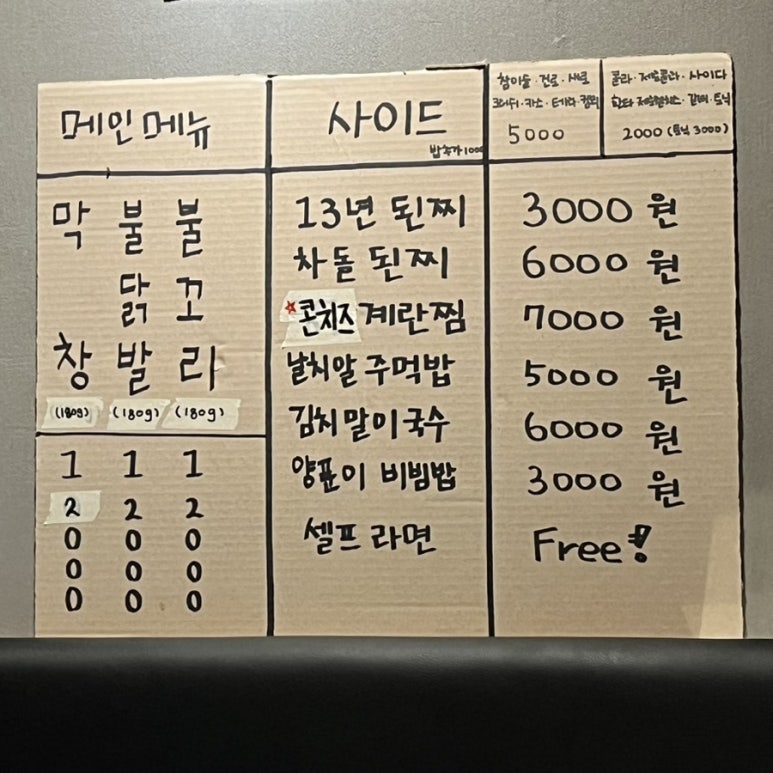 메인메뉴
막창
(180g)
12000
불닭발
(180g)
12000
불꼬리
(180g)
12000
사이드
밥추가1000
13년 된찌 3000 원
차돌 된찌 6000 원
콘치즈 계란찜 7000 원
날치알 주먹밥 5000 원
김치말이국수 6000 원
양푼이 비빔밥 3000 원
셀프 라면 Free!
참이슬·진로·새로
크러시·카스·테라·켈리
5000
콜라·제로콜라·사이다
2000 (토닉 3000)